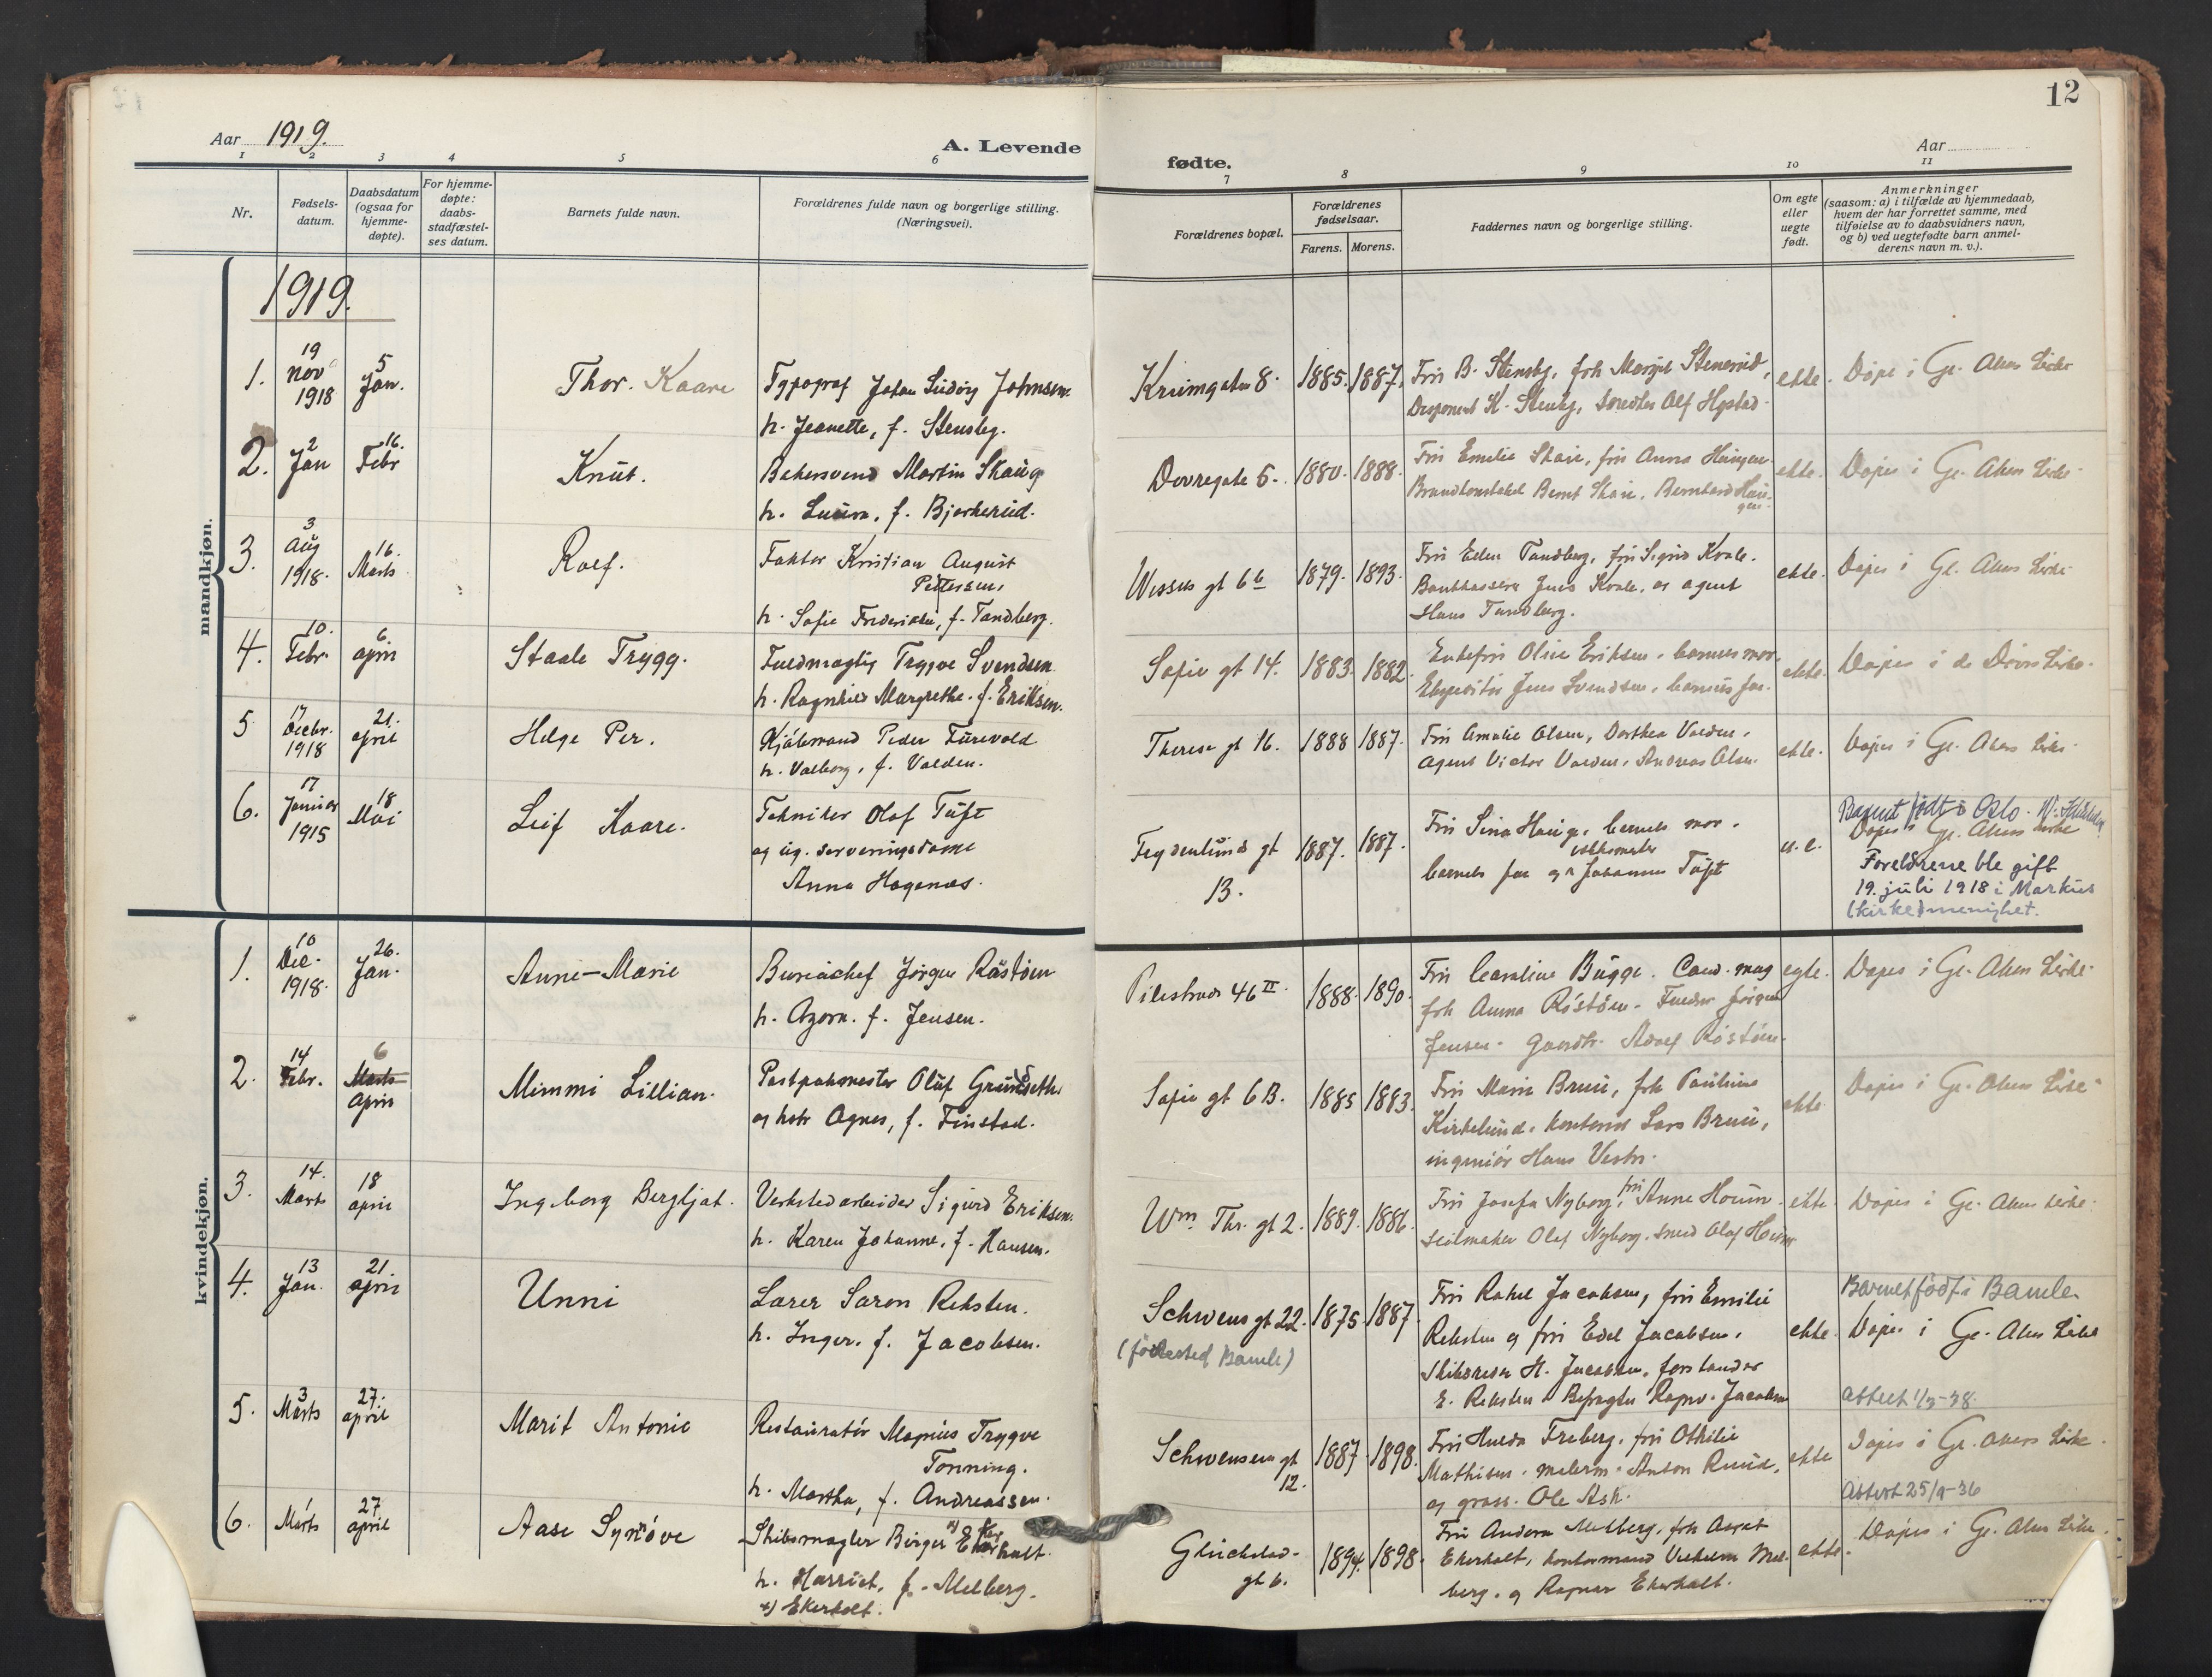 12
Aar 1919.
A. Levende
fødte.
Aar
1 2 3 4 5 6 7 8 9 10 11
Nr.
Fødsels-
datum.
Daabsdatum
(ogsaa for
hjemme-
døpte).
For hjemme-
døpte:
daabs-
stadfæstel-
ses datum.
Barnets fulde navn.
Forældrenes fulde navn og borgerlige stilling.
(Næringsvei).
Forældrenes bopæl.
Forældrenes
fødselsaar.
Farens. Morens.
Faddernes navn og borgerlige stilling.
Om egte
eller
uegte
født.
Anmerkninger
(saasom: a) i tilfælde av hjemmedaab,
hvem der har forrettet samme, med
tilføielse av to daabsvidners navn,
og b) ved uegtefødte barn anmel-
derens navn m. v.).
mandkjøn.
1919.
1. 19 Nov 1918 5 Jan. Thor. Kaare
Typograf Johan Ludvig Johnsen
h. Jeanette, f. Stensby.
Krumgaten 8. 1885. 1887.
Fru B. Stensby, frk Margit Stenerud,
Disponent K. Stensby, Alf
ekte. Døpt i Gl. Akers Kirke
2. 2 Jan 16. Febr Knut.
Bakersvend Martin Skaug
h. Laura, f. Bjerkerud.
Dovregate 6. 1880. 1888.
Fru Emilie Skau, fru Anna Haugen
Bernt Skau, Bernhard Hau-
gen.
ekte. Døpt i Gl. Akers Kirke
3. 3 Aug 1918. 16. Marts Rolf.
Faktor Kristian August
Pettersen,
h. Sofie Fredrikke, f. Tandberg.
Wessels gt 6b 1879. 1893.
Fru Eden Tandberg, fru Sigrid Kvale.
Bankkasserer Jens Kvale, og agent
Hans Tandberg.
ekte. Døpt i Gl. Akers Kirke
4. 10. Febr. 6 april Staale Trygg.
Fuldmægtig Trygve Svendsen
h. Ragnhild Margrethe. f. Eriksen.
Sofie gt 14. 1883. 1882.
Enkefru Oline Eriksen, barnets mor
Ekspeditør Jens Svendsen, barnets far.
ekte. Døpt i de Døves Kirke.
5 17 Decbr. 1918 21. april Helge Per.
Peder Furevold
h. Valborg, f. Valden.
Therese gt 16. 1888 1887.
Fru Amalie Olsen, Dorthea Valden,
agent Victor Valden, Andreas Olsen.
ekte. Døpt i Gl. Akers Kirke
6. 17 Januar 1915 18 Mai Leif Kaare.
Tekniker Olaf Tuft
og ug. serveringsdame
Anna Hagenæs.
Frydenlunds gt
13.
1887. 1887.
Fru Sina Hauge, barnets mor,
barnets far og Johannes Tuft
u. e.
Barnet født i Oslo.
Døpt i Gl. Akers Kirke
Foreldrene ble gift
19. juli 1918 i Markus
(kirke)menighet.
kvindekjøn.
1. 10 Dec. 1918. 26. Jan. Anne-Marie
Bureauchef Jørgen Røstøen
h. Agora. f. Jensen.
Pilestræde 46 II. 1888. 1890.
Fru Caroline Bugge. Cand. mag
frk Anna Røstøen. Jørgen
Jensen. Gaardbr. Adolf Røstøen.
egte. Døpt i Gl. Akers Kirke
2. 14 Febr. 6 Marts April Mimmi Lillian.
Postpakmester Oluf Grundseth
og hstr Agnes, f. Finstad.
Sofie gt 6 B. 1885 1883.
Fru Marie Bruu, frk Pauline
Kirkelund. Lars Bruu,
ingeniør Hans Vestre.
ekte Døpt i Gl. Akers Kirke
3. 14. Marts 18 april Ingeborg Bergljot.
Verkstedarbeider Sigurd Eriksen.
h. Karen Johanne, f. Hansen.
Wm. Thr. gt 2. 1889. 1886.
Fru Josefa Nyborg, fru Anne Houm
seilmaker Olaf Nyborg, smed Olaf Houm
ekte. Døpt i Gl. Akers Kirke
4. 13 Jan. 21. april Unni
Lærer Saron Reksten.
h. Inger. f. Jacobsen.
Schwens gt 22. 1875 1887
(fødested Bamle)
Fru Rakel Jacobsen, fru Emilie
Reksten og fru Edel Jacobsen.
Skibsreder H. Jacobsen, forstander
E. Reksten. Befragter Ragnv. Jacobsen
ekte.
Barnet født i Bamle
Døpt i Gl. Akers Kirke
Attest 1/3-38.
5. 3 Marts 27. april Marit Antonie
Restauratør Magnus Trygve
Tønning.
h. Martha, f. Andreassen.
Schwensens gt
12.
1887 1898.
Fru Hulda Freberg, fru Othilie
Mathisen. malerm. Anton Ruud,
og gross. Ole Ask.
ekte Døpt i Gl. Akers Kirke.
Attest 25/9-36
6. 1 Marts 27 april Aase Synnøve
Skibsmægler Birger x) Ekerholt.
h. Harriet, f. Melberg.
x) Ekerholt.
Glückstad-
gt 6.
1894. 1898.
Fru Andora Melberg, frk Aagot
Ekerholt, kontormand Vilhelm Mel-
berg. og Ragnar Ekerholt.
ekte. Døpt i Gl. Akers Kirke.